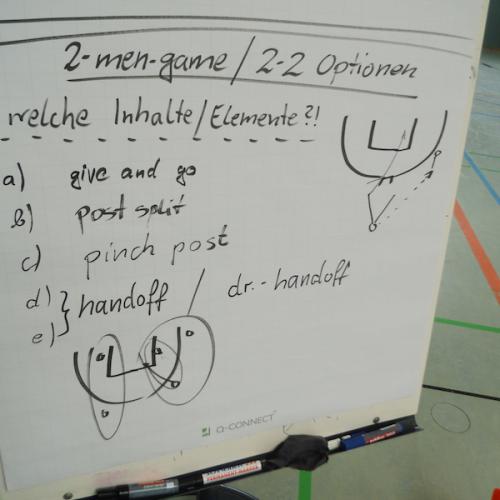 2-men-game / 2-2 Optionen
welche Inhalte/Elemente?!
a) give and go
b) post split
c) pinch post
d) } handoff / dr.-handoff
e)
Q-CONNECT